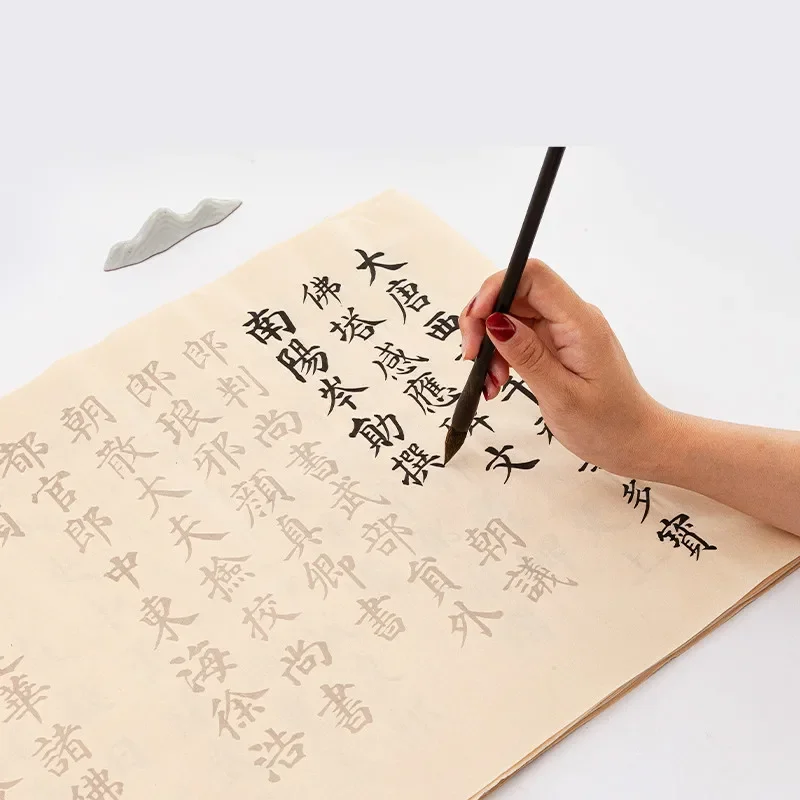 大唐西千多寶
佛塔感應碑文
南陽岑勛撰朝議
郎判尚書武部員外
郎琅邪顏真卿書
朝散大夫撿校尚書
都官郎中東海徐浩
華諸佛